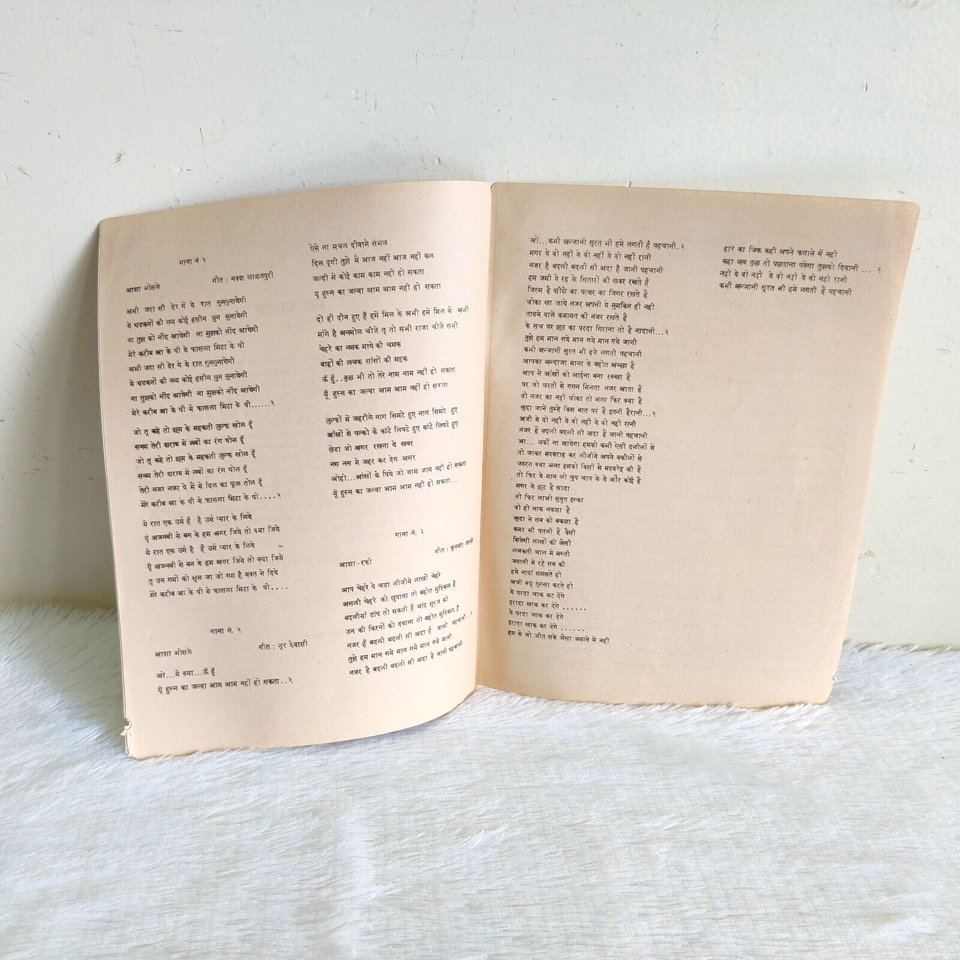 गाना नं १
आशा भोसले गीत : नक्श लायलपुरी
अभी जरा सी देर में ये रात गुनगुनायेगी
ये धडकनों की लय कोई हसीन धुन सुनायेगी
ना तुझ को नींद आयेगी ना मुझको नींद आयेगी
मेरे करीब आ के पी ये फासला मिटा के पी
अभी जरा सी देर में ये रात गुनगुनायेगी
ये धडकनों की लय कोई हसीन धुन सुनायेगी
ना तुझको नींद आयेगी ना मुझको नींद आयेगी
मेरे करीब आ के पी ये फासला मिटा के पी......२
जो तू कहे तो झूम के महकती जुल्फ खोल दूँ
सनम तेरी शराब में लबों का रंग घोल दूँ
जो तू कहे तो झूम के महकती जुल्फ खोल दूँ
सनम तेरी शराब में लबों का रंग घोल दूँ
तेरी नजर नजर पे मैं ये दिल का फूल तोल दूँ
मेरे करीब आ के पी ये फासला मिटा के पी....२
ये रात एक उम्र है है उमे प्यार के लिये
यूँ अजनबी से बन के हम अगर जिये तो क्या जिये
ये रात एक उम्र है है उमे प्यार के लिये
यूँ अजनबी से बन के हम अगर जिये तो क्या जिये
तू उन गमों को भूल जा जो गम है वक्त ने दिये
मेरे करीब आ के पी ये फासला मिटा के पी....
गाना नं. २
आशा भोसले गीत : नूर देवासी
अरे...ये क्या...ऊँ हूँ
यूँ हुस्न का जल्वा आम आम नहीं हो सकता..२
ऐसे ना मचल दीवाने संभल
दिल दूगी तुझे मैं आज नहीं आज नहीं कल
जल्दी में कोई काम काम नही हो सकता
यू हुस्न का जल्वा आम आम नही हो सकता
दो ही दीन हुए हैं हमे मिल के अभी हमे मिल के अभी
मांगे है अनमोल चीजे तु तो सभी राजा चीजे सभी
चेहरे का नमक माथे की चमक
बाहों की लचक सांसों की महक
ऊँ हूँ..कुछ भी तो तेरे नाम नाम नहीं हो सकता
यूँ हुस्न का जल्वा आम आम नहीं हो सकता
जुल्फों में जहरीले नाग सिमटे हुए नाग सिमटे हुए
आँखों से पल्कों के कांटे लिपटे हुए कांटे लिपटे हुए
छेडा जो अगर रखना ये खबर
नस नस में जहर कर देग असर
ओहो...आंखों के पिये जो जाम जाम नहीं हो सकता
यूँ हुस्न का जल्वा आम आम नही हो सकता...
गाना नं. ३
आशा-रफी गीत : कुलवंत जानी
आप चेहरे पे चडा लीजीये लाखों चेहरे
असली चेहरे को छुपाना तो बहोत मुश्किल है
बदलीयां ढांप तो सकती हैं चांद सूरज को
उन की किरनों को दबाना तो बहोत मुश्किल है
नजर हैं बदली बदली सी अदा है जानी पहचानी..२
तुझे हम मान गये मान गये मान गये जानी
नजर है बदली बदली सी अदा है जानी पहचानी
ओ...कभी अन्जानी सूरत भी हमे लगती हैं पहचानी..२
मगर ये वो नहीं ये वो नहीं ये वो नहीं रानी
नजर है बदली बदली सी अदा है जानी पहचानी
हम जमी पे रह के सितारों की खबर रखते हैं
जिस्म हैं शीशे का पत्थर का जिगर रखते हैं
धोका खा जाये नजर अपनी ये मुमकिन ही नही
ताडने वाले कयामत की नजर रखते हैं
के सच पर झूट का परदा गिराना तो है नादानी...२
तुझे हम मान गये मान गये मान गये जानी
कभी अन्जानी सूरत भी हमे लगती पहचानी
आपका अन्दाजा माना के बहोत अच्छा हैं
आप ने आंखों को आईना बना रख्खा हैं
पर जो धरती से गगन मिलता नजर आता हैं
वो नजर का नहीं धोका तो भला फिर क्या हैं
खुदा जाने तुम्हे किस बात पर है इतनी हैरानी...२
अजी ये वो नहीं ये वो नहीं ये वो नहीं रानी
नजर हैं बदली बदली सी अदा हैं जानी पहचानी
आ... यकीं ना आयेगा हमको कभी ऐसी दलीलों से
तो जाकर मशवराह कर लीजीये अपने वकीलों से
जरुरत क्या भला हमको किसी से मशवरेह की हैं
तो फिर ये मान लो चुप चाप के ये और कोई हैं
मगर ये झूट है सादा
तो फिर लाओ सुबूत इस्का
वो ही नाक नकशा हैं
खुदा ने सब को बकशा हैं
कमर भी पतली हैं वैसी
मिलेगी लाखों की ऐसी
लचकती चाल में मस्ती
जवानी में रहे सब की
हमे नादां समझते हो
अजी क्यू गुस्सा करते हो
ये परदा चाक कर देंगे
इरादा खाक कर देंगे ......
ये परदा चाक कर देंगे
इरादा खाक कर देंगे ......
हम से जो जीत सके ऐसा जमाने में नही
हार का जिक कही अपने फसाने में नही
कहा अब कुछ तो पछताना पडेगा तुझको दिवानी ... २
नहीं ये वो नहीं ये वो नहीं ये वो नहीं रानी
कभी अन्जानी सूरत भी हमे लगती हैं पहचानी